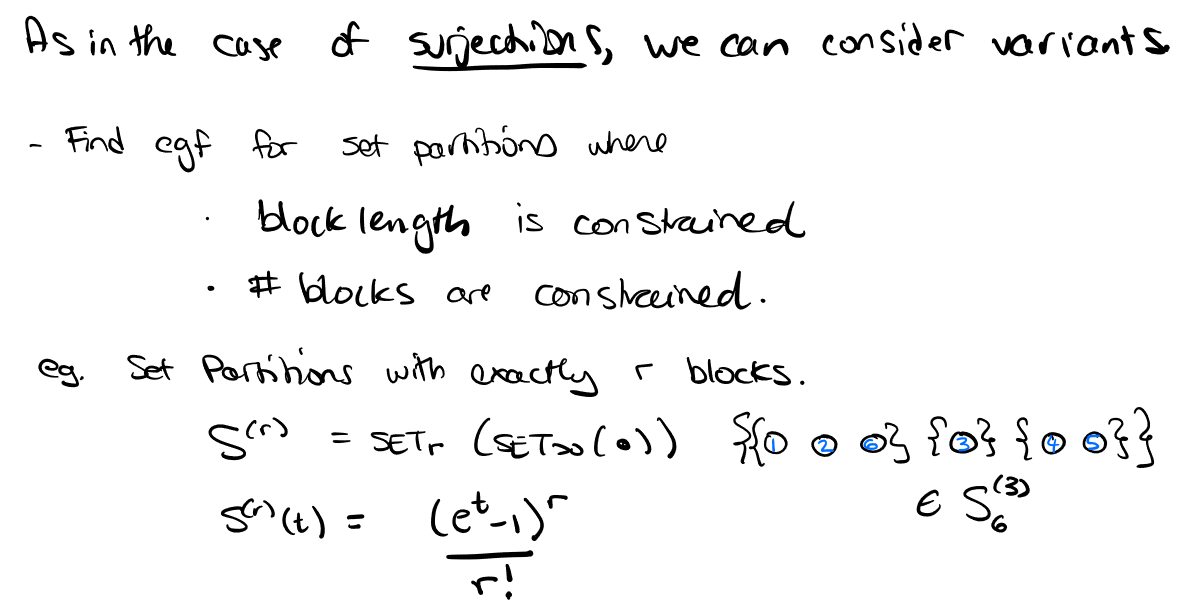 As in the case of surjections, we can consider variants
- Find egf for set partitions where
· block length is constrained
· # blocks are constrained.
eg. Set Partitions with exactly r blocks.
S^(r) = SET_r (SET_>0(•)) {{① ② ⑥} {③} {④ ⑤}}
∈ S_6^(3)
S^(r)(t) = (e^t-1)^r / r!